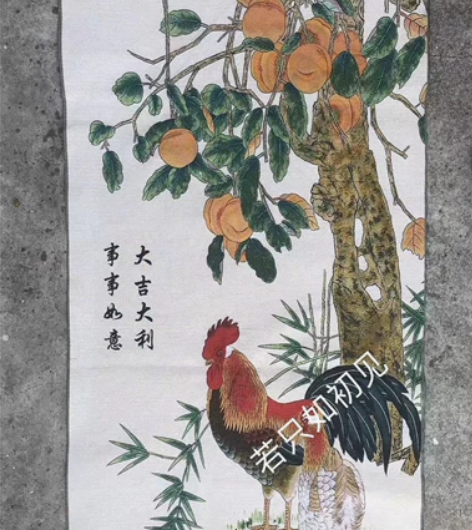 大吉大利
事事如意
若只如初见